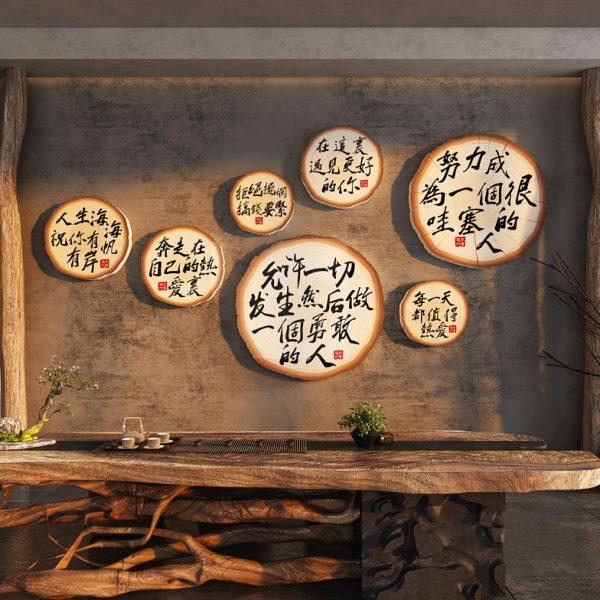 人生海海
祝你有帆
有岸
奔走在
自己的熱
愛裏
拒絕擺爛
搞錢要緊
在這裏
遇見更好
的你
允许一切
发生然后做
一個勇敢
的人
努力成
為一個很
哇塞的
人
每一天
都值得
熱愛